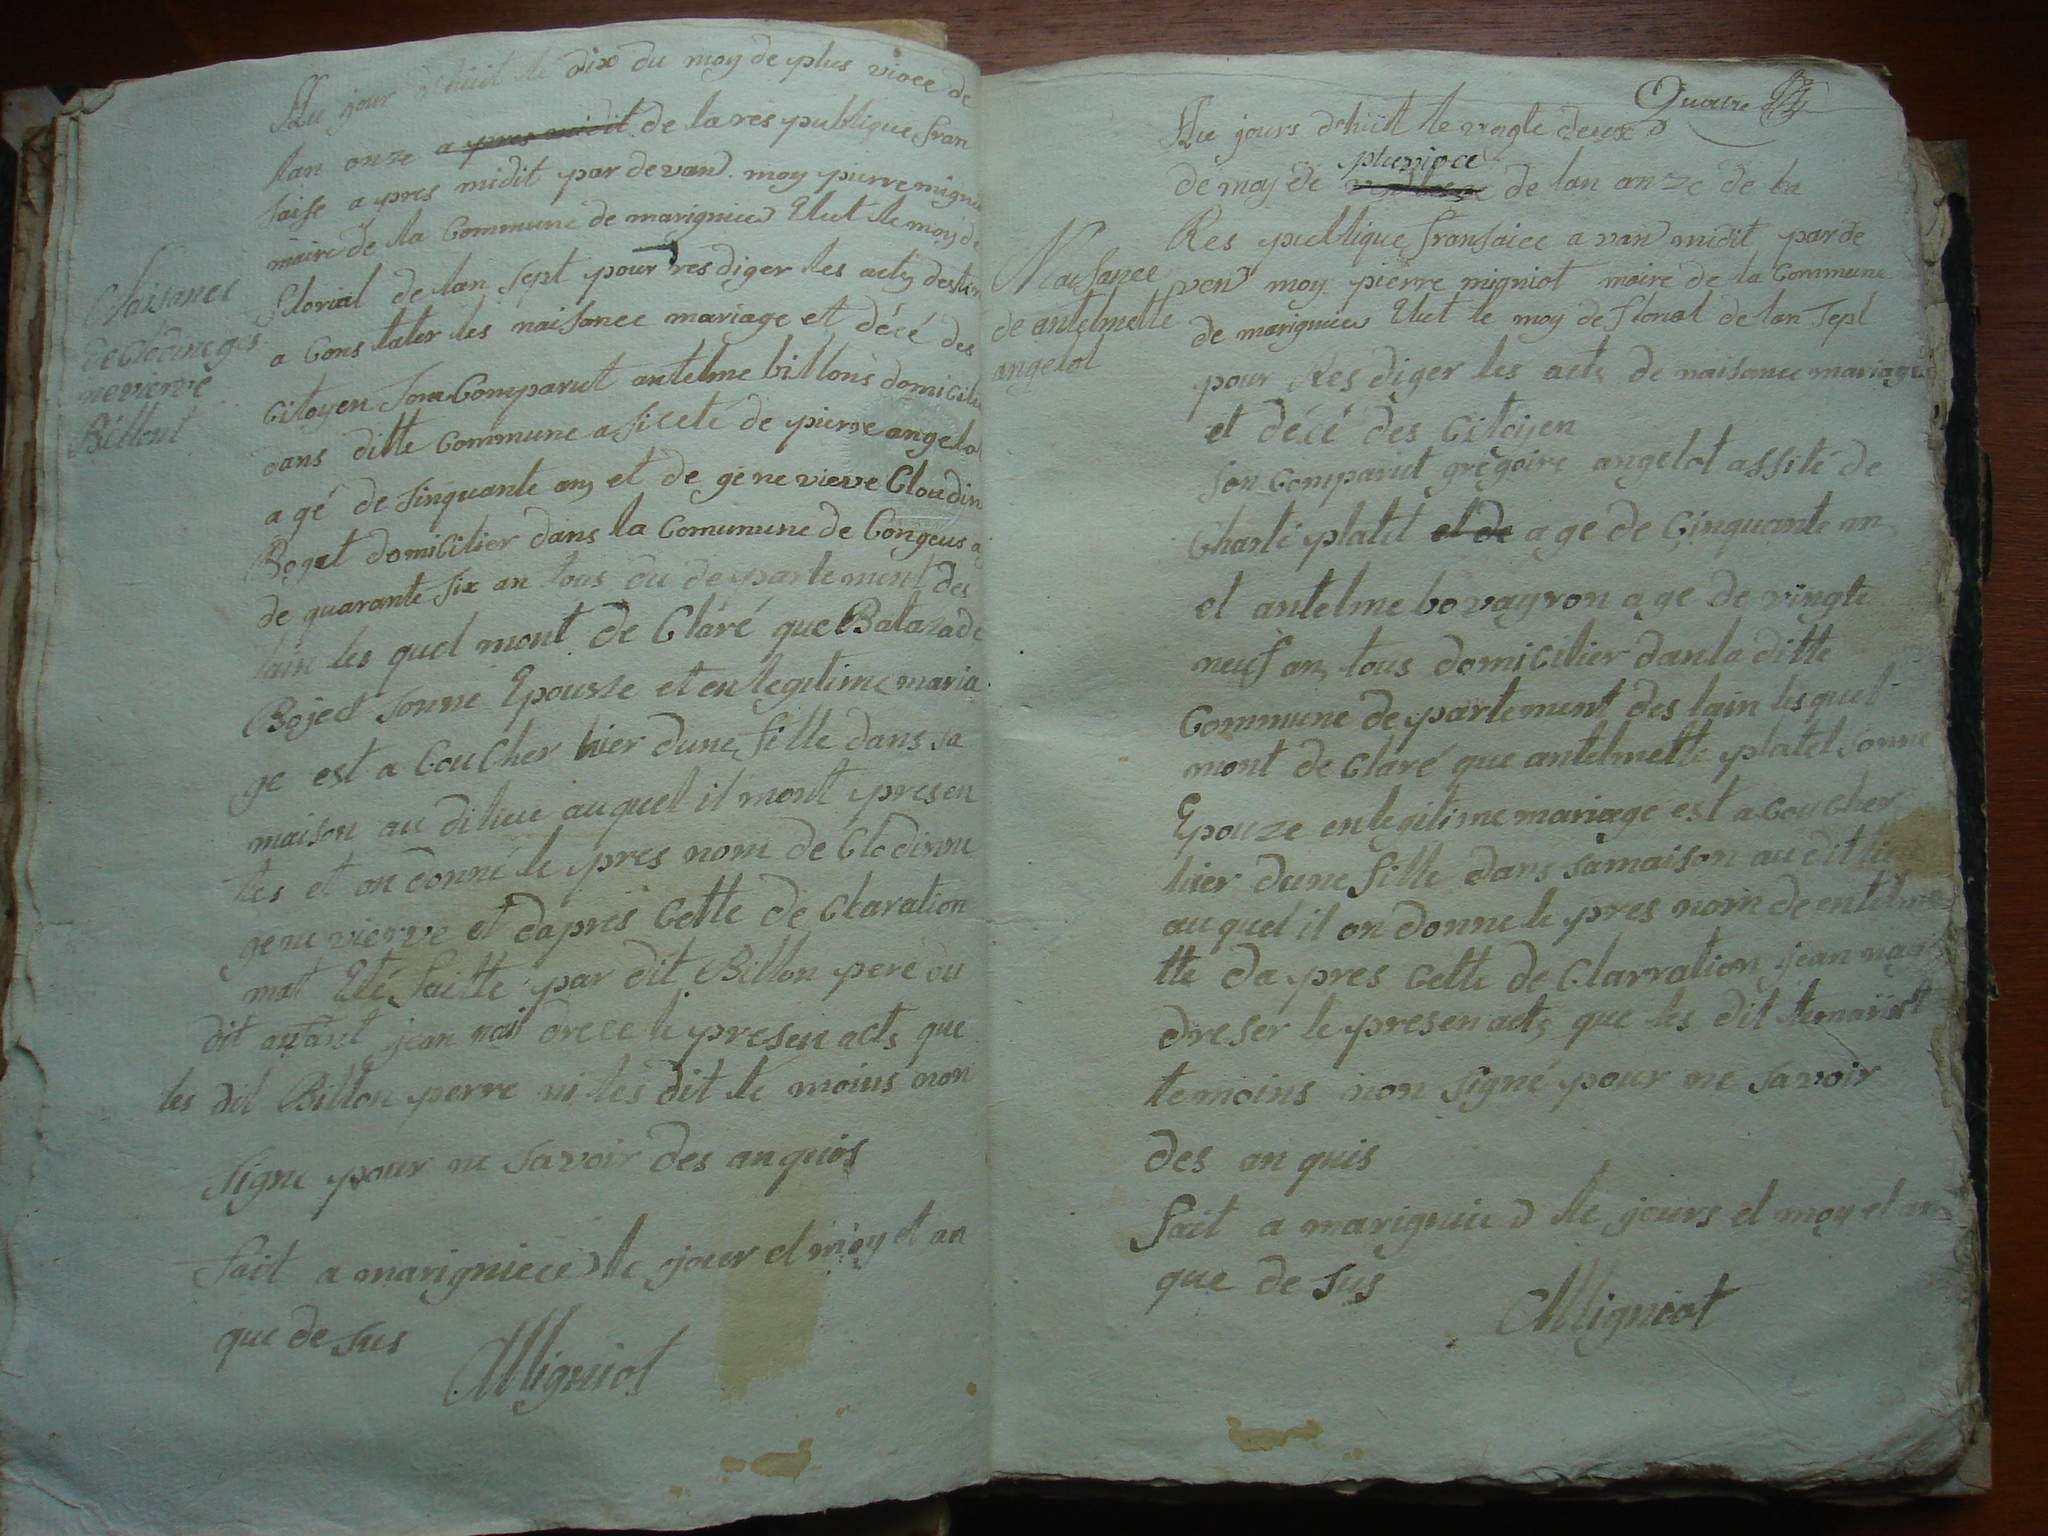 Au jour dhuit le dix du moy de plus viose de
lan onze apres midit de la res publique fran
saise apres midit par devan moy pierre migniot
maire de la Commune de marignieu Elut le moy de
florial de lan sept pour res diger les acts destin
a Cons tater les naisance mariage et décé des
Citoyen Son Comparut antelme billons domicilie
dans ditte Commune asicete de pierre angelot
agé de sinquante an et de gene vieve Cloudin
Bogat domicilier dans la Comumune de Congeus a
de quarante six an tous du departement des
lain les quel mont de Claré que Balaza de
Boject sonne Epousze et en legitime maria
ge est a Coucher hier dune fille dans sa
maison au dilieu au quel il mont presen
tes et on donné le pres nom de Clodinne
gene vierve et dapres Cette de Claration
mat Eté faitte par dit Billon peré du
dit anfant jean nai drece le presen acts que
les dit Billon perre ni les dit te moins non
signe pour ne savoir des anquis
fait a marigniece le jour et moy et an
que de sus
Migniot
Naisance
de Clodine ge
nevierve
Billont
Quatre
Au jours dhuit le vingte deux
de moy de pluviose de lan onze de la
Res publique fransaice avan midit par de
ven moy pierre migniot maire de la Commune
de marignieu Elut le moy de florial de lan sept
pour Res diger les acts de naisance mariage
et décé des Citoijen
Son Comparut grégoire angelot assité de
Charle platet et de age de Cinquante an
et antelme bovayron age de vingte
neuf an tous domicilier dan la ditte
Commune departement des lain lesquel
mont de Claré que antelmette platel sonne
Epouze en legitime mariage est a Coucher
hier dune fille dans samaison au dit lieu
au quel il on donne le pres nom de entelme
tte da pres Cette de Clarration jean nay
dreser le presen acts que les dit
temoins non signé pour ne savoir
des an quis
fait a marignieu le jours et moy et an
que de sus
Migniot
Naisance
de antelmette
angelot